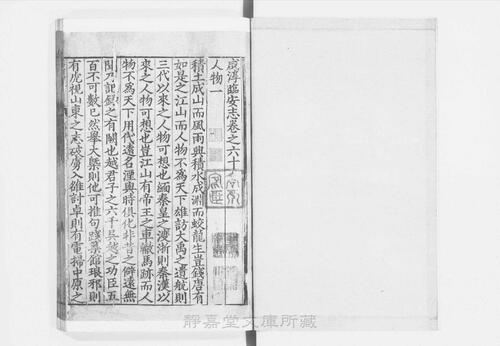 咸淳臨安志卷之六十
人物一
積土成山而風雨興積水成淵而蛟龍生豈錢唐有
如是之江山而人物不為天下雄訪大禹之遺航則
三代以來之人物可想也緬秦皇之渡浙則秦漢以
來之人物可想也豈江山有帝王之車轍馬跡而人
物不為天下用代遠名湮與時俱化非昔之僻遠無
聞乃記録之有闕也越君子之六千吳越之功臣五
百不可數已然舉大槩則他可推句踐築館琅邪則
有虎視山東之志破虜入雒討卓則有電掃中原之
靜嘉堂文庫所藏